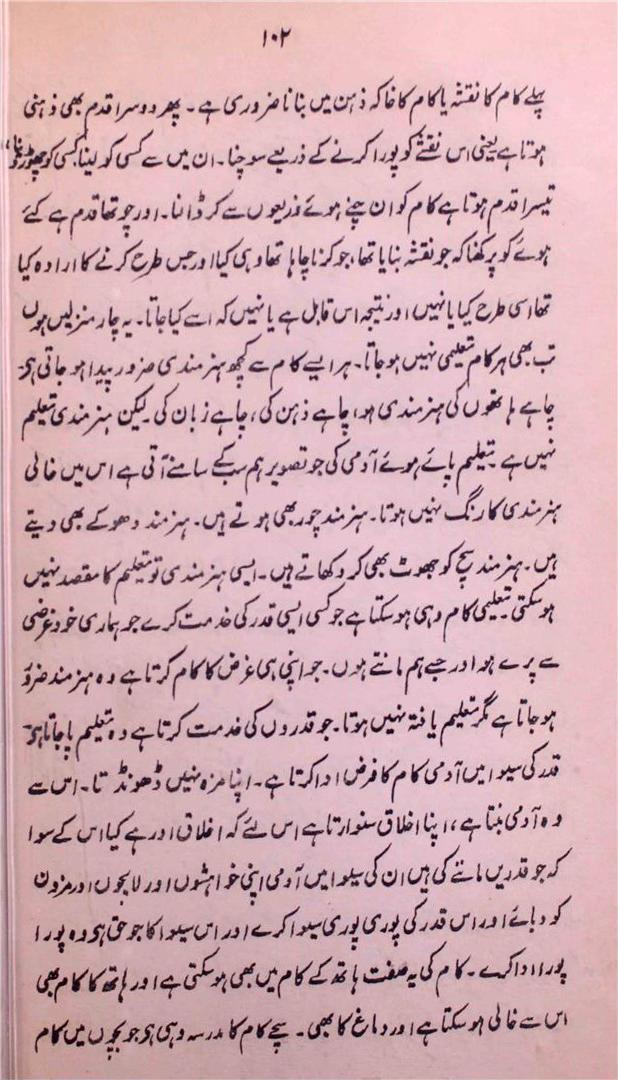 ۱۰۲
پہلے کام کا نقشہ یا کام کا خاکہ ذہن میں بنانا ضروری ہے۔ پھر دوسرا قدم بھی ذہنی
ہوتا ہے یعنی اس نقشے کو پورا کرنے کے ذریعے سوچنا۔ ان میں سے کسی کو لینا کسی کو چھوڑنا،
تیسرا قدم ہوتا ہے کام کو ان چنے ہوئے ذریعوں سے کر ڈالنا۔ اور چوتھا قدم ہے کئے
ہوئے کو پرکھنا کہ جو نقشہ بنایا تھا، جو کرنا چاہا تھا وہی کیا اور جس طرح کرنے کا ارادہ کیا
تھا اسی طرح کیا یا نہیں اور نتیجہ اس قابل ہے یا نہیں کہ اسے کیا جاتا۔ یہ چار منزلیں ہوں
تب بھی ہر کام تعلیمی نہیں ہو جاتا۔ ہر ایسے کام سے کچھ ہنرمندی ضرور پیدا ہو جاتی ہی۔
چاہے ہاتھوں کی ہنرمندی ہو، چاہے ذہن کی، چاہے زبان کی لیکن ہنرمندی تعلیم
نہیں ہے۔ تعلیم پائے ہوئے آدمی کی جو تصویر ہم سب کے سامنے آتی ہے اس میں خالی
ہنرمندی کا رنگ نہیں ہوتا۔ ہنرمند چور بھی ہوتے ہیں۔ ہنرمند دھوکے بھی دیتے
ہیں۔ ہنرمند سچ کو جھوٹ بھی کر دکھاتے ہیں۔ ایسی ہنرمندی تو تعلیم کا مقصد نہیں
ہو سکتی۔ تعلیمی کام وہی ہو سکتا ہے جو کسی ایسی قدر کی خدمت کرے جو ہماری خود غرضی
سے پرے ہو اور جسے ہم مانتے ہوں۔ جو اپنی ہی غرض کا کام کرتا ہے وہ ہنرمند ضرور
ہو جاتا ہے مگر تعلیم یافتہ نہیں ہوتا۔ جو قدروں کی خدمت کرتا ہے وہ تعلیم پا جاتا ہی۔
قدر کی سیوا میں آدمی کام کا فرض ادا کرتا ہے۔ اپنا مزہ نہیں ڈھونڈتا۔ اس سے
وہ آدمی بنتا ہے، اپنا اخلاق سنوارتا ہے اس لئے کہ اخلاق اور ہے کیا اس کے سوا
کہ جو قدریں ماننے کی ہیں ان کی سیوا میں آدمی اپنی خواہشوں اور لالچوں اور مزوں
کو دبائے اور اس قدر کی پوری پوری سیوا کرے اور اس سیوا کا جو حق ہی وہ پورا
پورا ادا کرے۔ کام کی یہ صفت ہاتھ کے کام میں بھی ہو سکتی ہے اور ہاتھ کا کام بھی
اس سے خالی ہو سکتا ہے اور دماغ کا بھی۔ سچے کام کا مدرسہ وہی ہی جو بچوں میں کام